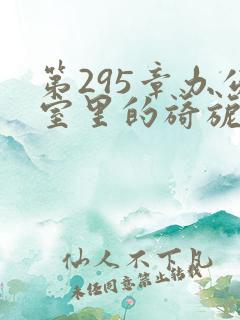 第295章办公
室里的旖旎
仙人不下凡
未经同意禁止转载